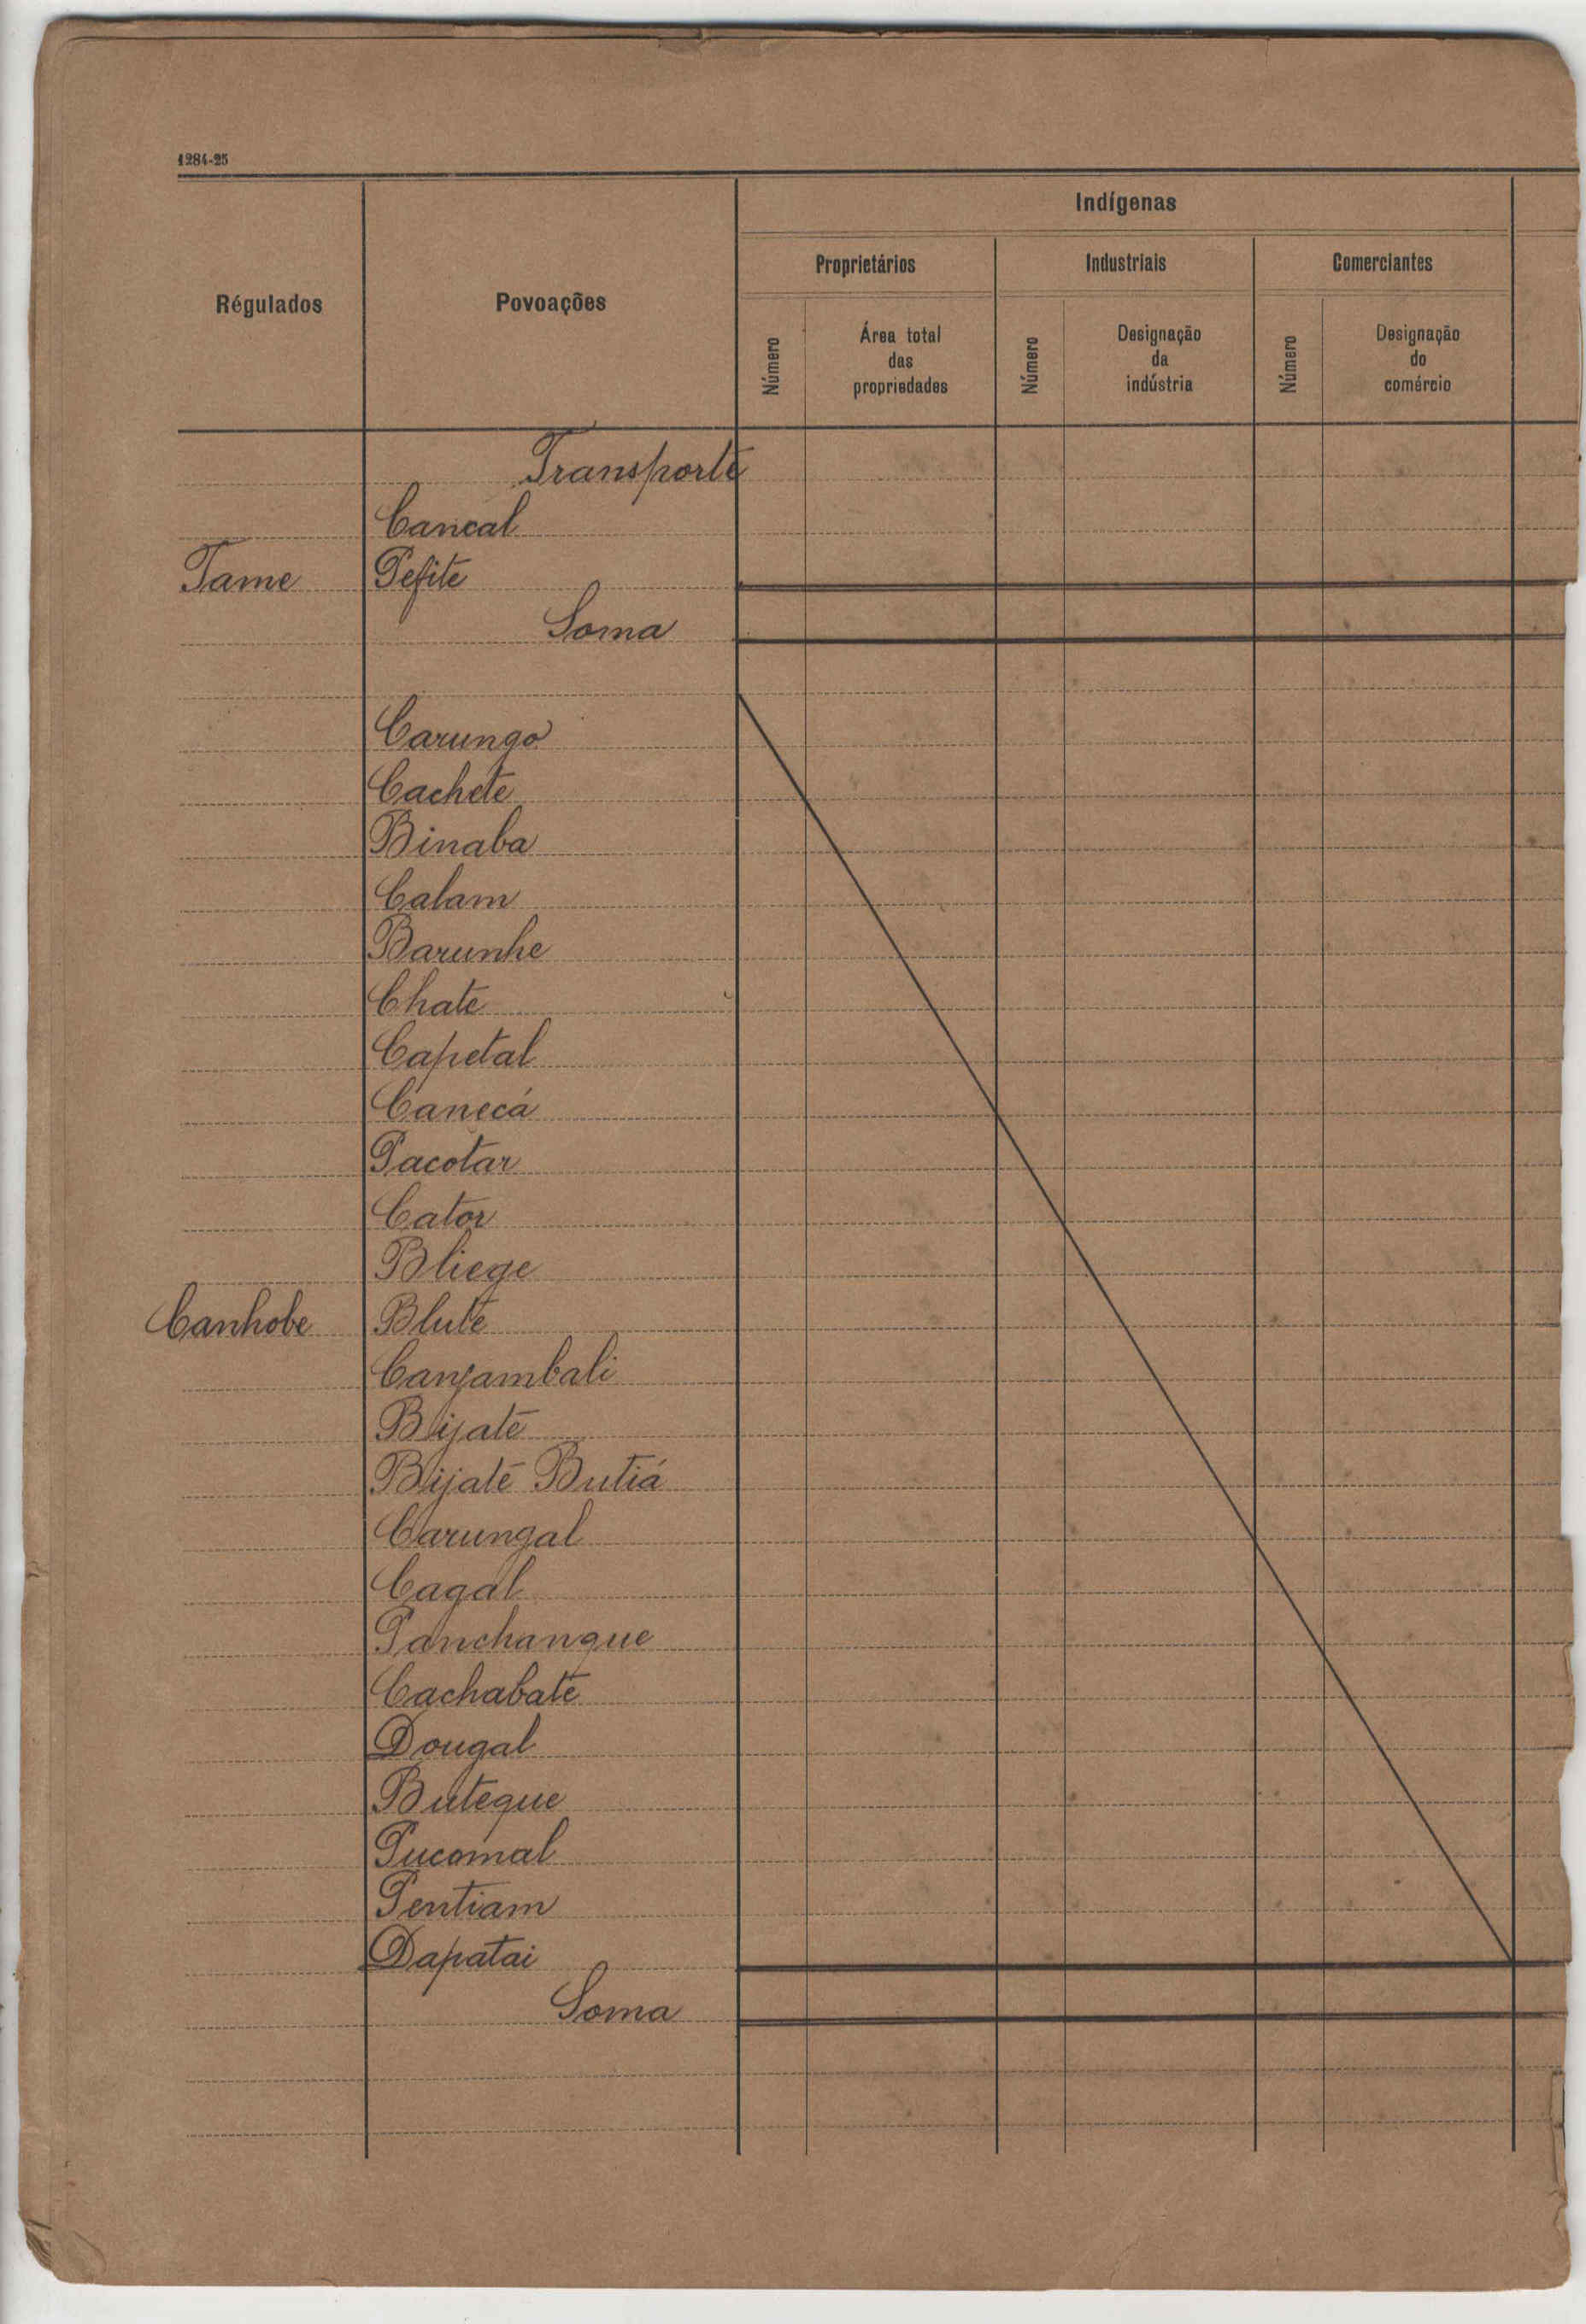 1284-25
Indígenas
Régulados Povoações Proprietários Industriais Comerciantes
Número Área total das propriedades Número Designação da indústria Número Designação do comércio
Transporte
Cancal
Tame Pefite
Soma
Carungo
Cachete
Binaba
Calam
Barunhe
Chate
Capetal
Canecá
Pacotar
Cator
Bliege
Canhobe Blute
Canjambali
Bijate
Bijate Butiá
Carungal
Cagal
Panchangue
Cachabate
Dougal
Butegue
Pucomal
Pentiam
Dapatai
Soma